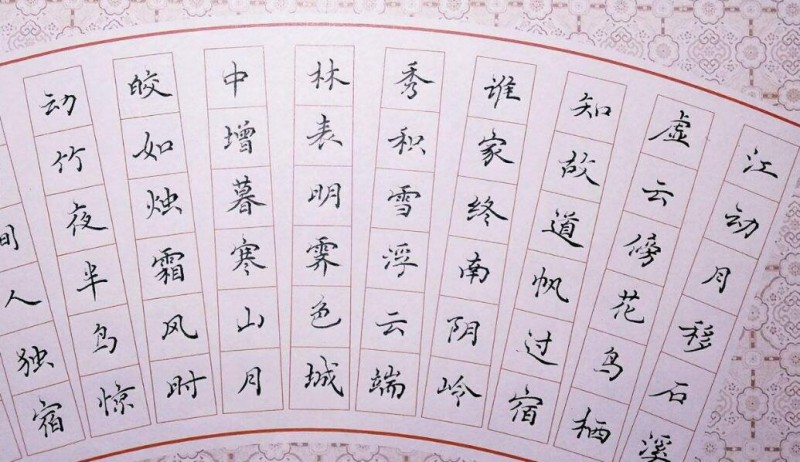 江动月移石溪
虚云傍花鸟栖
知故道帆过宿
谁家终南阴岭
秀积雪浮云端
林表明霁色城
中增暮寒山月
皎如烛霜风时
动竹夜半鸟惊
人独宿